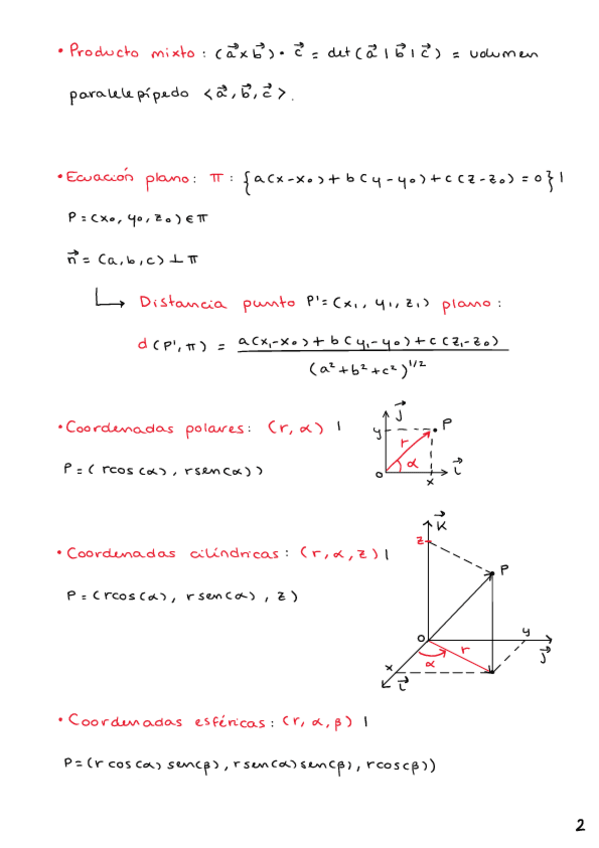 • Producto mixto: (a⃗ x b⃗) • c⃗ = det(a⃗ | b⃗ | c⃗) = volumen
paralelepípedo <a⃗, b⃗, c⃗>.
• Ecuación plano: π: {a(x-x₀)+b(y-y₀)+c(z-z₀)=0} |
P=(x₀, y₀, z₀) ∈ π
n⃗ = (a, b, c) ⊥ π
↳ Distancia punto P'=(x₁, y₁, z₁) plano:
d(P', π) = a(x₁-x₀)+b(y₁-y₀)+c(z₁-z₀)
(a²+b²+c²)^1/2
• Coordenadas polares: (r, α) |
P=(rcos(α), rsen(α))
j⃗
y
P
r
α
O
x
i⃗
• Coordenadas cilíndricas: (r, α, z) |
P=(rcos(α), rsen(α), z)
k⃗
z
P
O
y
j⃗
r
α
x
i⃗
• Coordenadas esféricas: (r, α, β) |
P=(r cos(α) sen(β), rsen(α)sen(β), rcos(β))
2